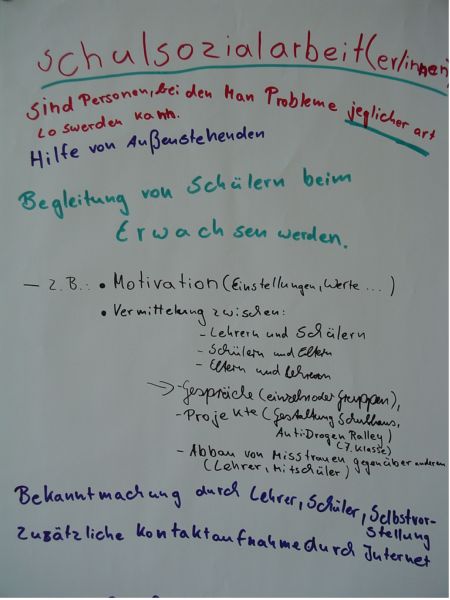 Schulsozialarbeit(er/innen)
Sind Personen, bei den Man Probleme jeglicher art
loswerden kann.
Hilfe von Außenstehenden
Begleitung von Schülern beim
Erwachsenwerden.
– z.B.: • Motivation (Einstellungen, Werte ...)
• Vermittelung zwischen:
- Lehrern und Schülern
- Schülern und Eltern
- Eltern und Lehrern
→ - Gespräche (einzeln oder Gruppen),
- Projekte (Gestaltung Schulhaus,
Anti-Drogen Ralley)
(7. Klasse)
- Abbau von Misstrauen gegenüber anderen
(Lehrer, Mitschüler)
Bekanntmachung durch Lehrer, Schüler, Selbstvor-
stellung
Zusätzliche Kontaktaufnahme durch Internet